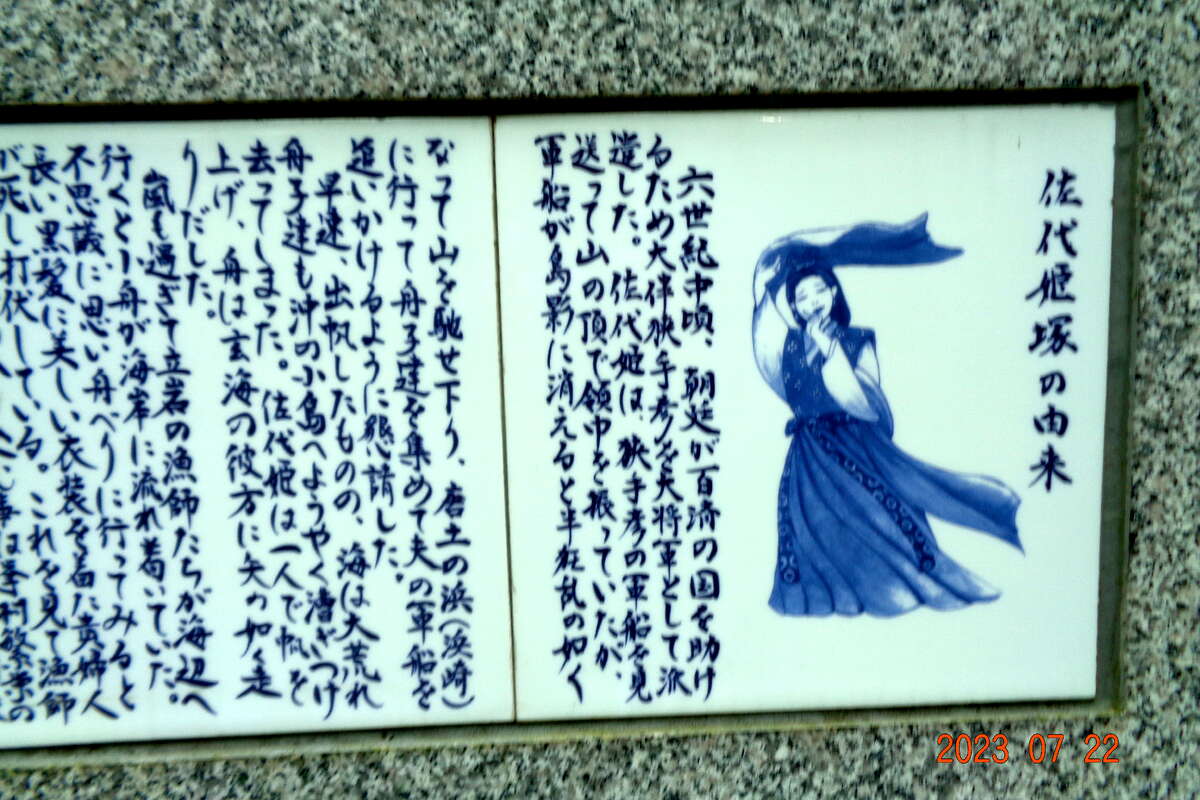 佐代姫塚の由来
六世紀中頃、朝廷が百済の国を助け
るため大伴狭手彦を大将軍として派
遣した。佐代姫は、狭手彦の軍船を見
送って山の頂で領巾を振っていたが、
軍船が島影に消えると半狂乱の如く
なって山を馳せ下り、唐土の浜(浜崎)
に行って舟子達を集めて夫の軍船を
追いかけるように懇請した。
早速、出帆したものの、海は大荒れ
舟子達も沖の小島へようやく漕ぎつけ
去ってしまった。佐代姫は一人で帆を
上げ、舟は玄海の彼方に矢の如く走
りだした。
嵐も過ぎて立岩の漁師たちが海辺へ
行くと小舟が海岸に流れ着いていた。
不思議に思い舟べりに行ってみると
長い黒髪に美しい衣装を着た貴婦人
が死し打伏している。これを見て漁師
2023 07 22